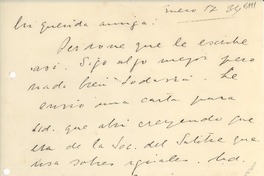 Enero 17 39
Mi querida amiga:
Perdone que le escriba
así. Sigo algo mejor pero
nada bien todavía. Le
envío una carta para
Ud. que abrí creyendo que
era de la Soc. del Salitre que
usa sobres iguales. Ud.